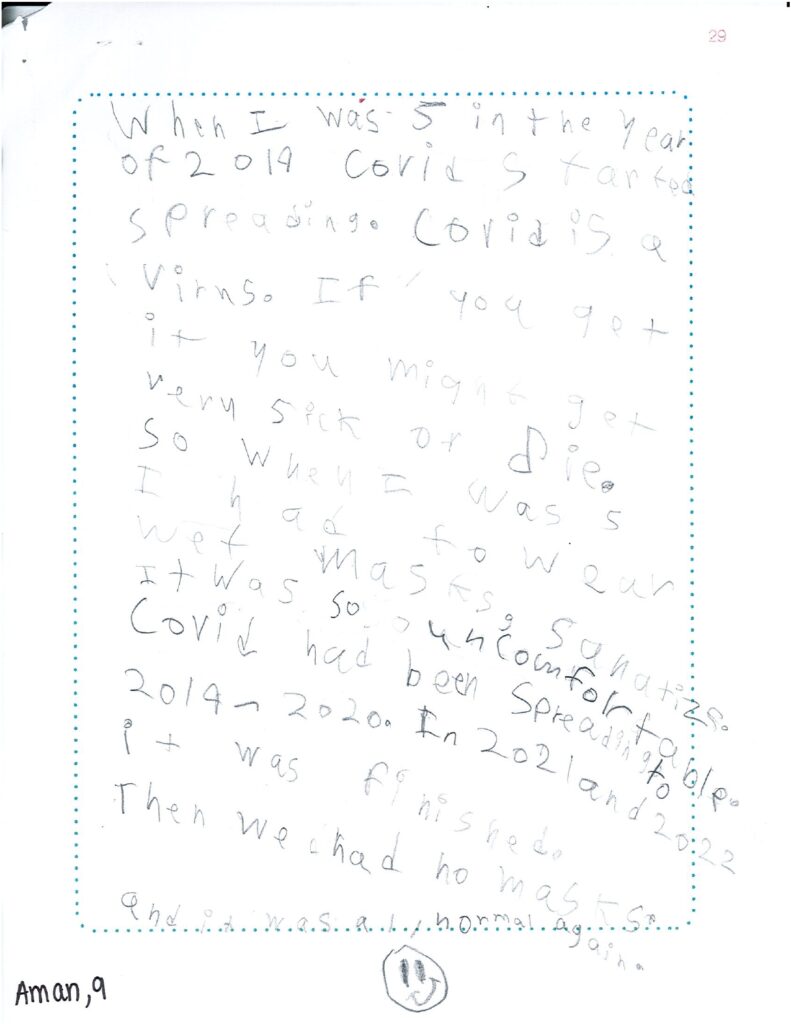 29
When I was 5 in the year
of 2019 Covid Started
spreading. Covid is a
Virus. If you get
it you might get
very sick or die.
So when I was 5
I had to wear
wet masks, Sanatize.
It was so uncomfortable.
Covid had been spreading to
2019-2020. In 2021 and 2022
it was finished.
Then we had no masks.
and it was all normal again.
Aman, 9